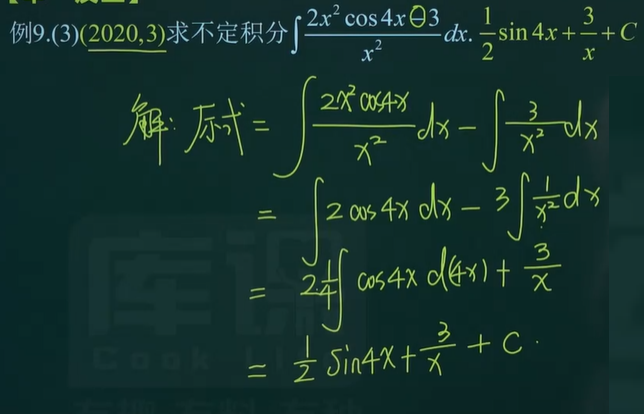 例9.(3)(2020,3)求不定积分∫(2x² cos 4x − 3)/x² dx. 1/2 sin 4x + 3/x + C
解: 原式 = ∫ 2x² cos4x / x² dx − ∫ 3/x² dx
= ∫ 2 cos 4x dx − 3∫ 1/x² dx
= 2·1/4 ∫ cos4x d(4x) + 3/x
= 1/2 Sin4x + 3/x + C.
库课
Cook